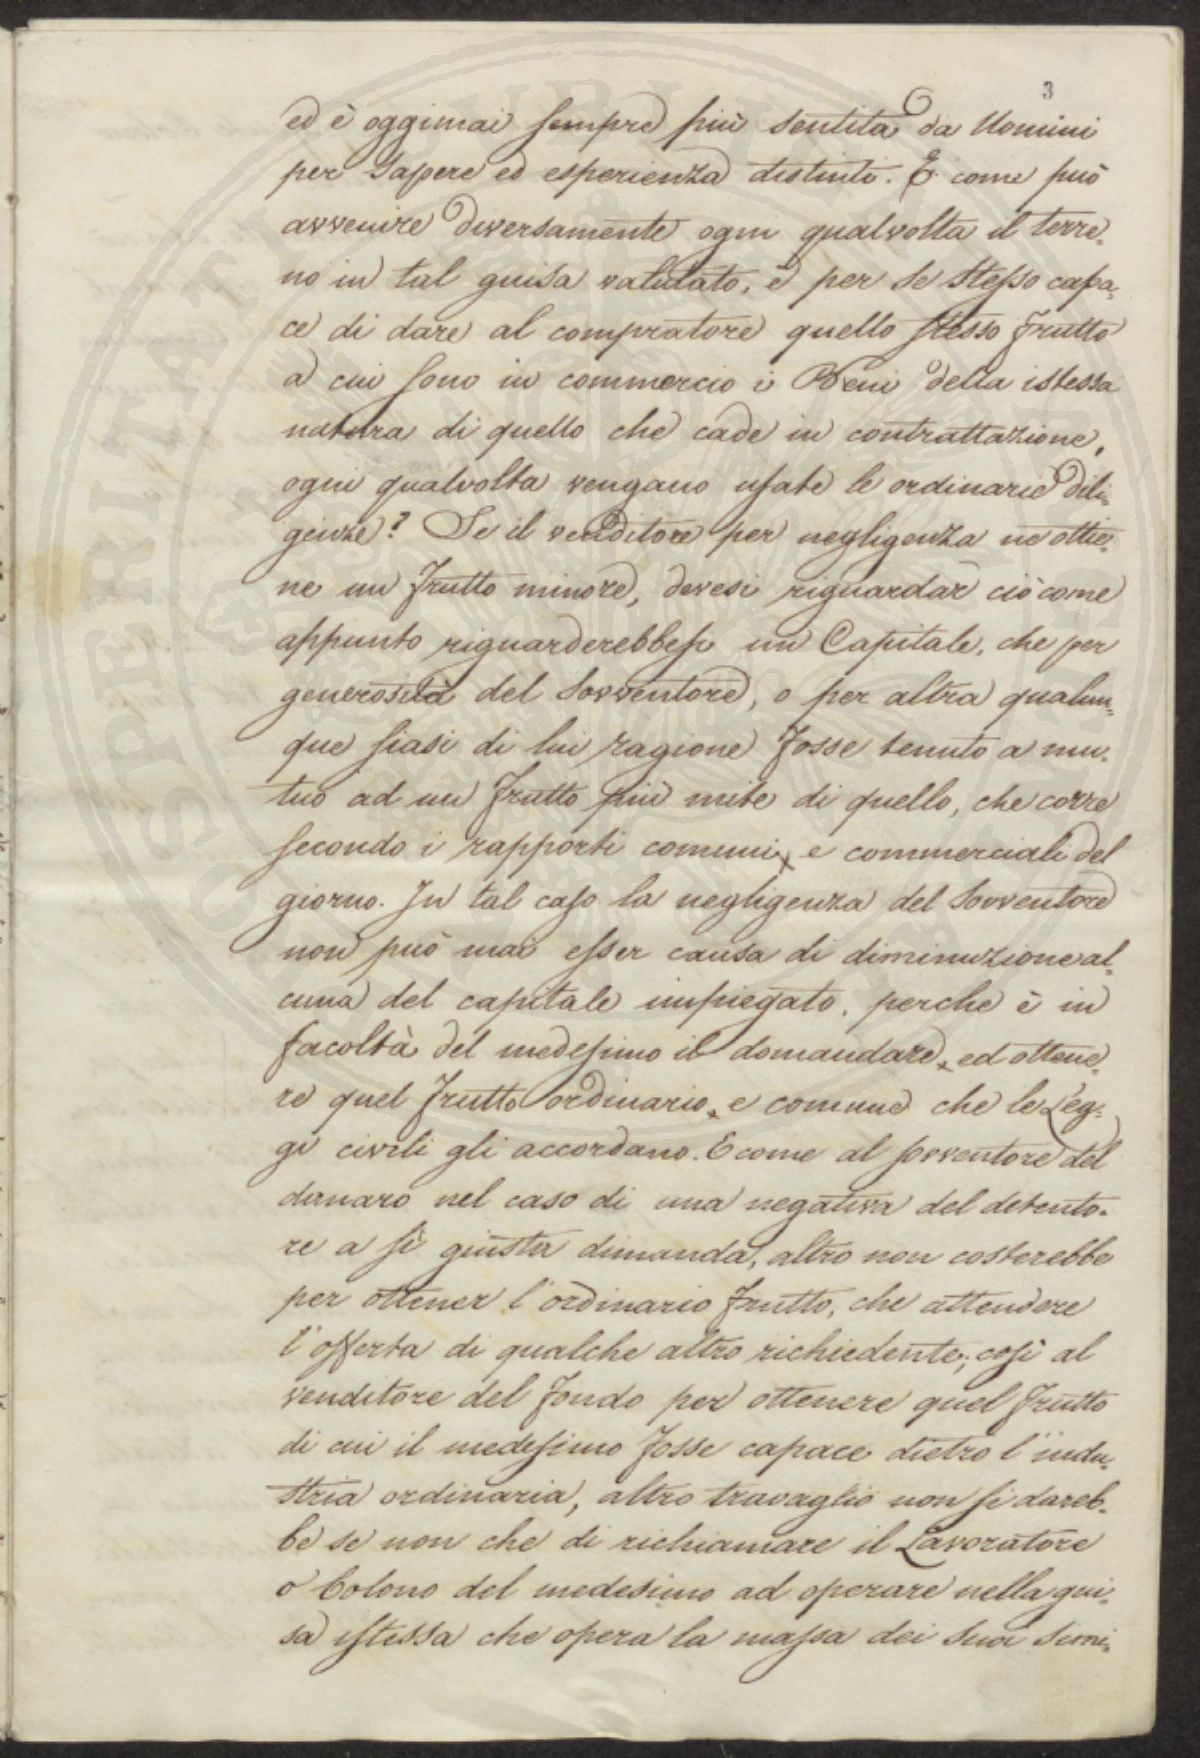 3
ed è oggimai sempre più sentita da Uomini
per Sapere ed esperienza distinti. E come può
avvenire diversamente ogni qualvolta il terre-
no in tal guisa valutato, è per se stesso capa-
ce di dare al compratore quello stesso frutto
a cui sono in commercio i Beni della istessa
natura di quello che cade in contrattazione,
ogni qualvolta vengano usate le ordinarie dili-
genze? Se il venditore per negligenza ne ottie-
ne un frutto minore, devesi riguardar ciò come
appunto riguarderebbesi un Capitale, che per
generosità del Sovventore, o per altra qualun-
que siasi di lui ragione fosse tenuto a mu-
tuo ad un frutto più mite di quello, che corre
secondo i rapporti comuni, e commerciali del
giorno. In tal caso la negligenza del Sovventore
non può mai esser causa di diminuzione al-
cuna del capitale impiegato, perche è in
facoltà del medesimo il domandare, ed ottene-
re quel frutto ordinario, e comune che le Leg-
gi civili gli accordano. E come al sovventore del
danaro nel caso di una negativa del detento-
re a sì giusta dimanda, altro non costerebbe
per ottener l'ordinario frutto, che attendere
l'offerta di qualche altro richiedente; così al
venditore del fondo per ottenere quel frutto
di cui il medesimo fosse capace dietro l'indu-
stria ordinaria, altro travaglio non si dareb-
be se non che di richiamare il Lavoratore
o Colono del medesimo ad operare nella gui-
sa istessa che opera la massa dei suoi simi-
SPERITATI PUBLICAE